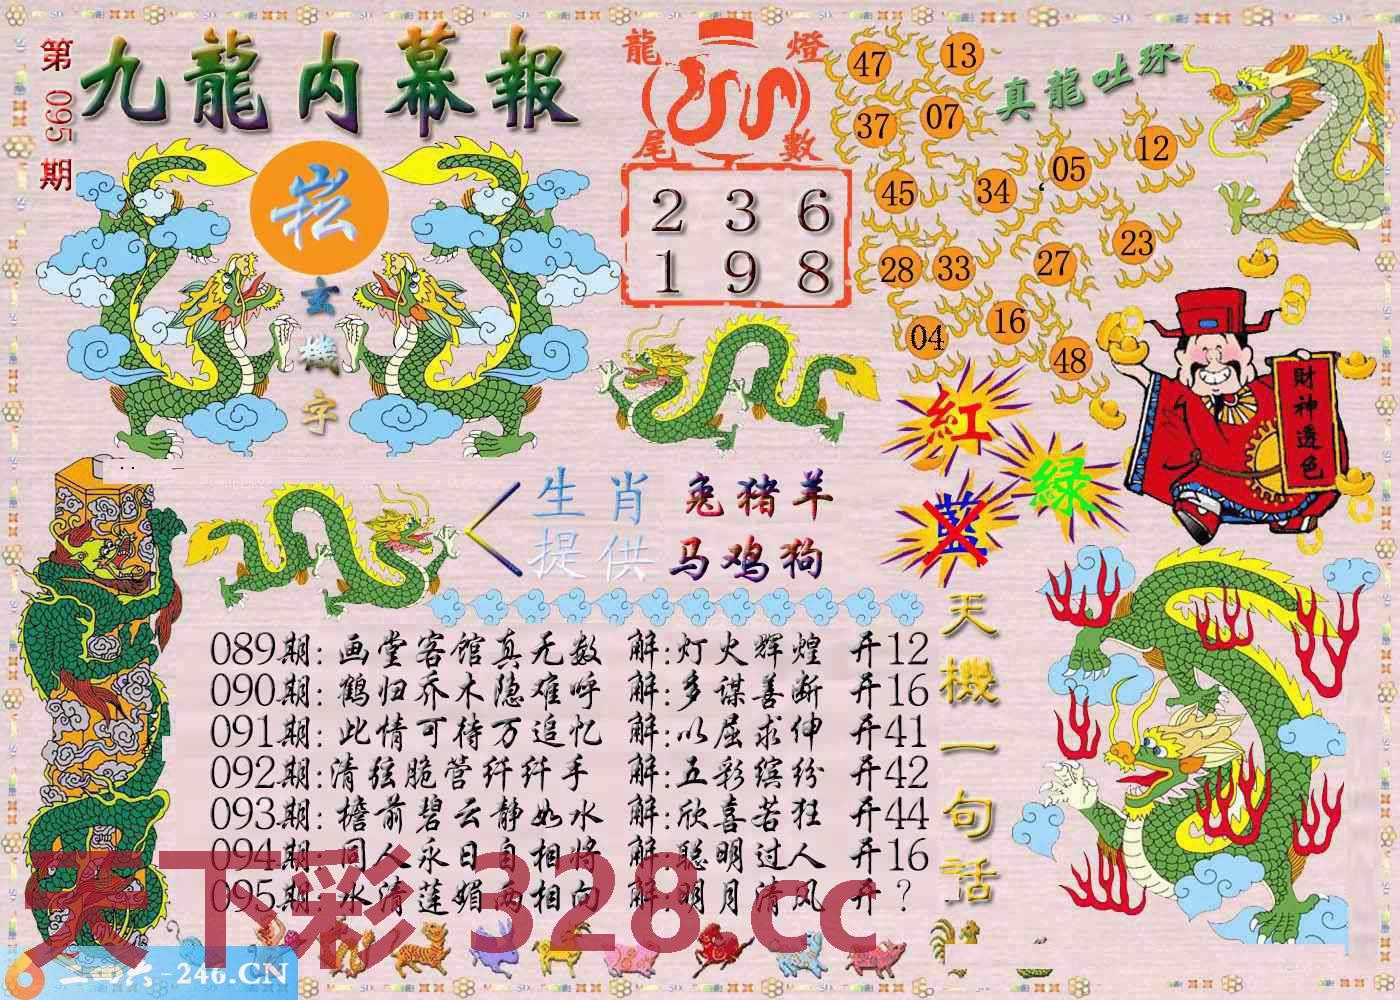 第095期
九龍内幕報
崧
玄機字
龍燈尾數
2 3 6
1 9 8
真龍吐珠
47
13
37
07
12
05
45
34
23
28
33
27
16
04
48
財神透色
紅
绿
蓝
生肖提供
兔猪羊
马鸡狗
天機一句話
089期:画堂客馆真无数 解:灯火辉煌 开12
090期:鹤归乔木隐难呼 解:多谋善断 开16
091期:此情可待万追忆 解:以屈求伸 开41
092期:清弦脆管纤纤手 解:五彩缤纷 开42
093期:檐前碧云静如水 解:欣喜若狂 开44
094期:同人永日自相将 解:聪明过人 开16
095期:水清莲媚两相向 解:明月清风 开？
天下彩 328.cc
二四六-246.CN